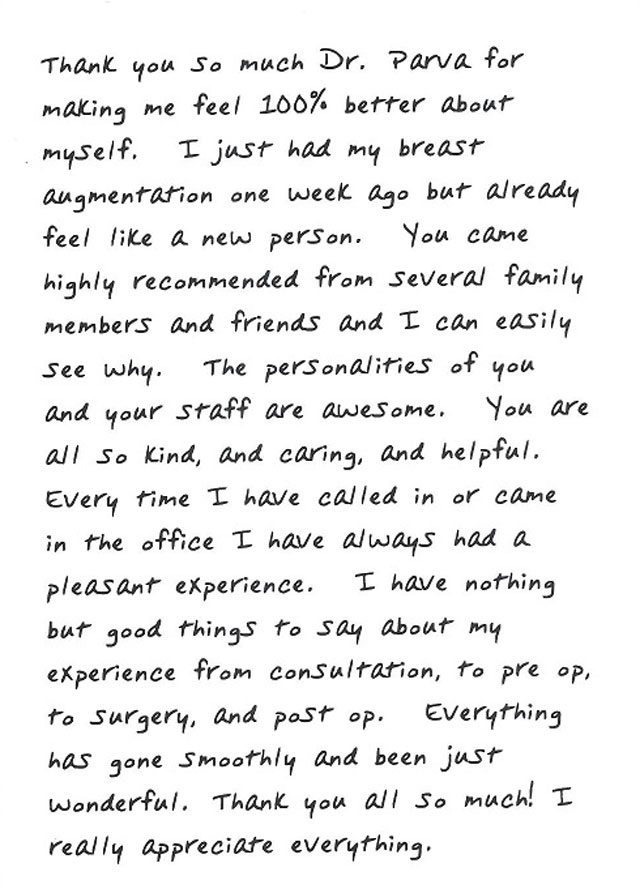 Thank you so much Dr. Parva for
making me feel 100% better about
myself. I just had my breast
augmentation one week ago but already
feel like a new person. You came
highly recommended from several family
members and friends and I can easily
see why. The personalities of you
and your staff are awesome. You are
all so kind, and caring, and helpful.
Every time I have called in or came
in the office I have always had a
pleasant experience. I have nothing
but good things to say about my
experience from consultation, to pre op,
to surgery, and post op. Everything
has gone smoothly and been just
wonderful. Thank you all so much! I
really appreciate everything.